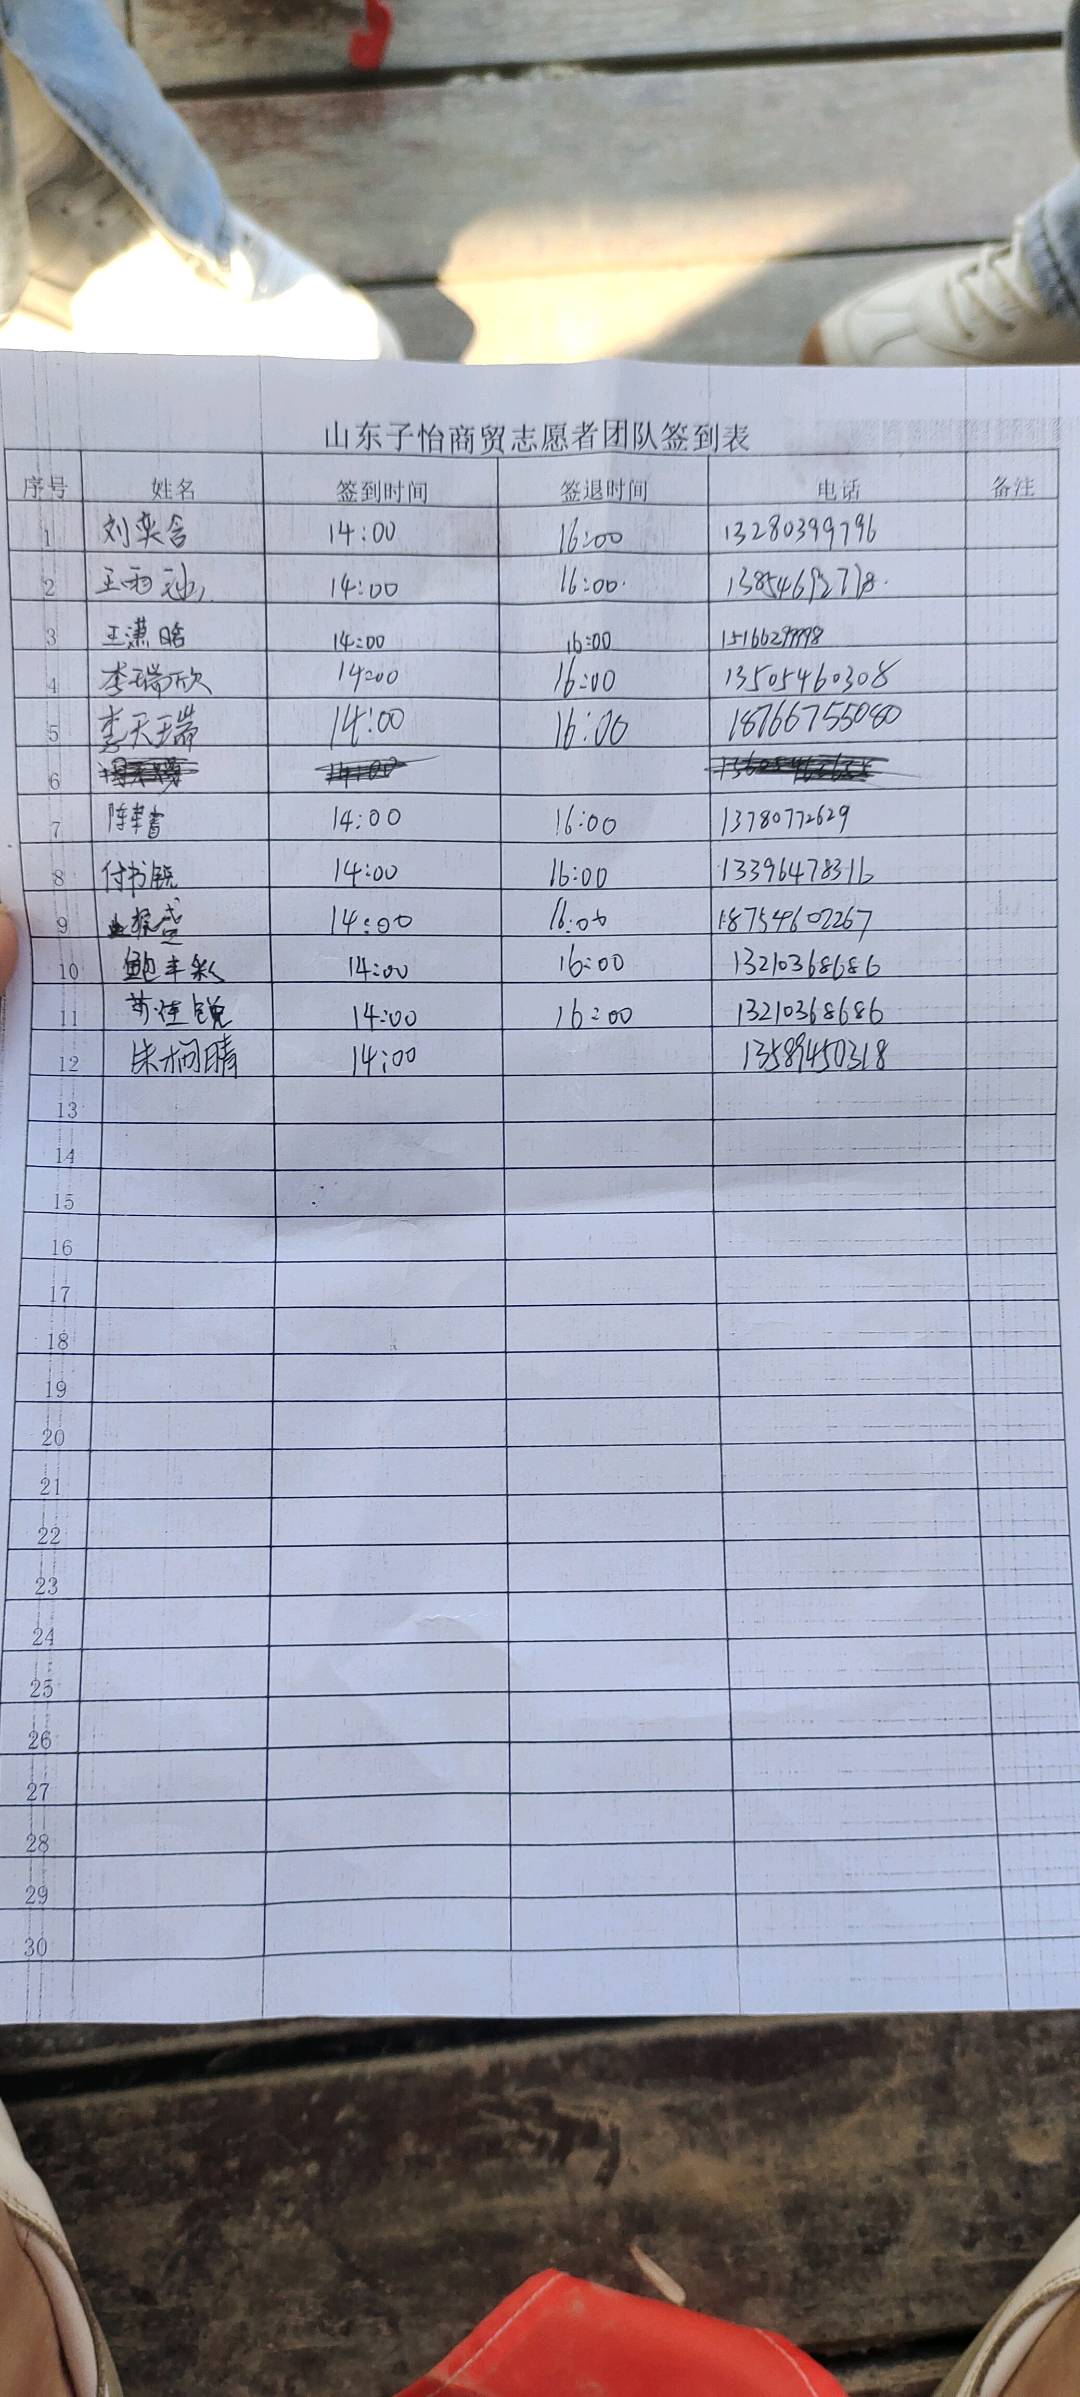 山东子怡商贸志愿者团队签到表
序号 姓名 签到时间 签退时间 电话 备注
1 刘奕含 14:00 16:00 13280399796
2 王雨 14:00 16:00 13854692718
3 王潇晗 14:00 16:00
4 李瑞欣 14:00 16:00 13505460308
5 李天瑞 14:00 16:00 18766755080
6
7 14:00 16:00 13780772629
8 付书锐 14:00 16:00 13396478316
9 14:00 16:00 18754602267
10 鲍丰彩 14:00 16:00 13210368686
11 14:00 16:00 13210368686
12 14:00 13589450318
13
14
15
16
17
18
19
20
21
22
23
24
25
26
27
28
29
30